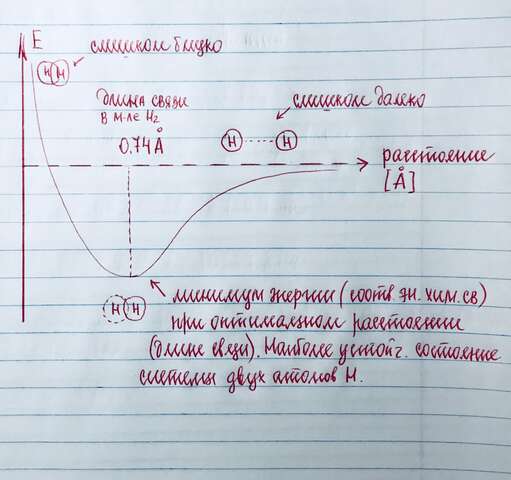 E
слишком близко
H H
длина связи
в м-ле H₂
0.74 Å
слишком далеко
H H
расстояние
[Å]
H H
минимум энергии (соотв. эн. хим. св)
при оптимальном расстоянии
(длине связи). Наиболее устойч. состояние
системы двух атомов H.